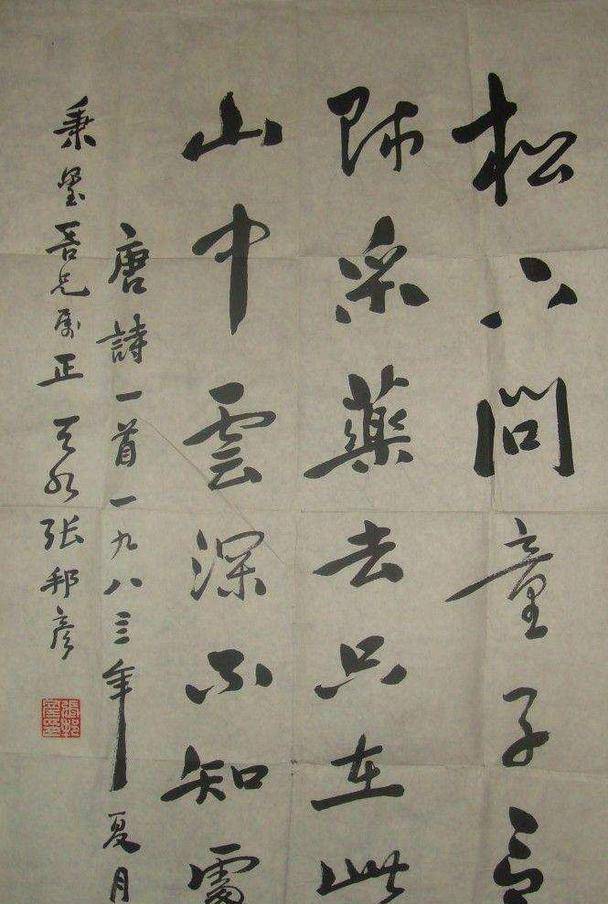 松下問童子言
師采藥去只在此
山中雲深不知處
唐詩一首一九八三年夏月
秉璧吾兄属正 天水張邦彦
張邦彦印